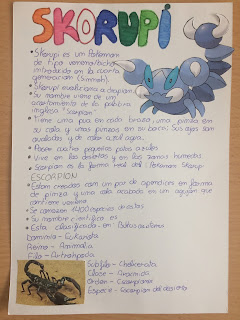 SKORUPI
• Skorupi es un Pokémon
de tipo veneno/bicho
introducido en la cuarta
generación (Sinnoh).
• Skorupi evoluciona a Drapion
• Su nombre viene de un
acortamiento de la palabra
inglesa "Scorpion"
• Tiene una púa en cada brazo, una pinza en
su cola y unas pinzas en su boca. Sus ojos son
ovalados y de color azul
• Poseen cuatro pequeñas patas azules
• Vive en los desiertos y en las zonas humedas
• Scorpion es la forma real del Pokémon Skorupi
ESCORPIÓN
• Están creados con un par de apéndices en forma
de pinza y una cola acabada en un aguijón que
contiene veneno
• Se conocen 1400 especies distintas
• Su nombre científico es
• Esta clasificado en
Dominio - Eukariota
Reino - Animalia
Filo - Arthropoda
Subfilo - Chelicerata
Clase - Arácnida
Orden - Escorpiones
Especie - Escorpion del desierto